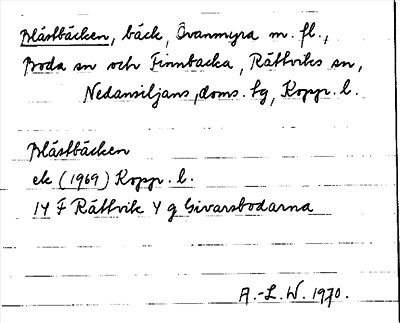 Blästbäcken, bäck, Ovanmyra m. fl.,
Boda sn och Finnbacka, Rättviks sn,
Nedansiljans doms. tg, Kopp. l.
Blästbäcken
ek (1969) Kopp. l.
14 F Rättvik 4 g Sivarsbodarna
A.-L. W. 1970.